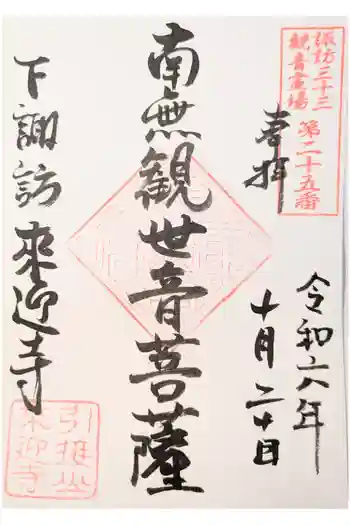 諏訪三十三
観音霊場
第二十五番
奉拝
令和六年
十月二十日
南無観世音菩薩
下諏訪来迎寺
引接山
来迎寺